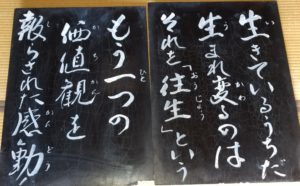 生きているうちだ
生まれ変るのは
それを「往生」という
もう一つの
価値観を
報らされた感動!